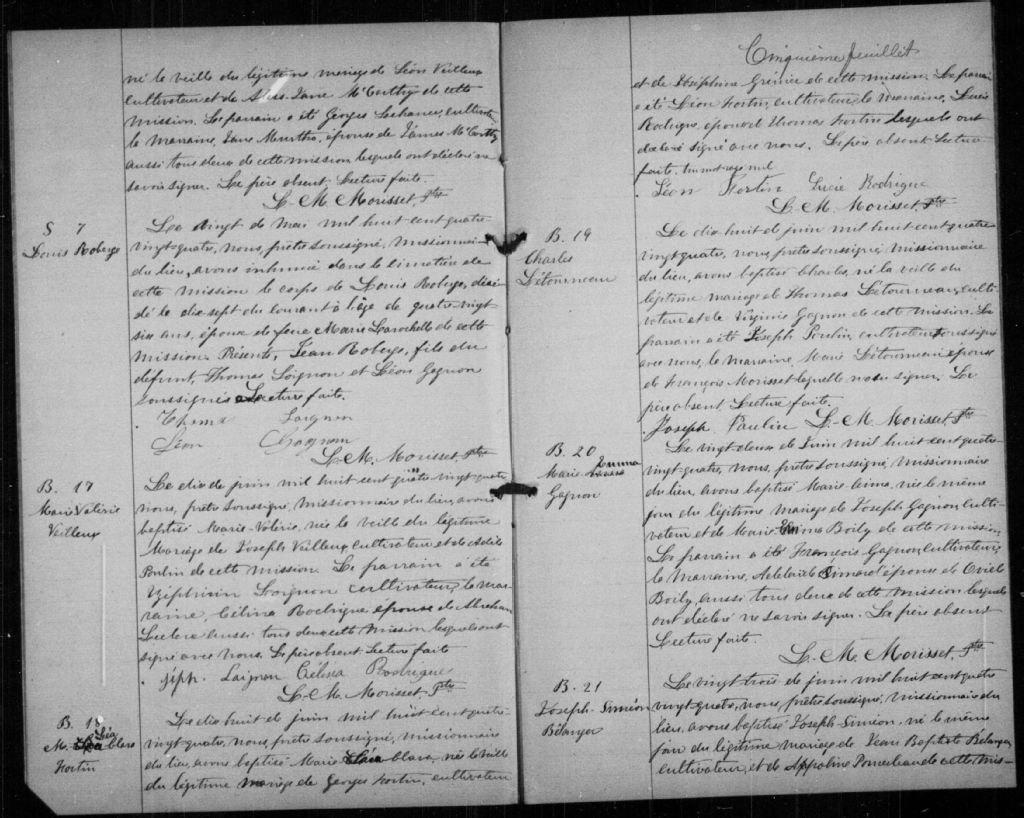 né le veille du légitime mariage de Léon Veilleux
cultivateur et de Jane McCarthy de cette
mission. Le parrain a été Georges Lachance, cultivateur,
la marraine, Jane Murtha, épouse de James McCarthy
aussi tous deux de cette mission lesquels ont déclaré ne
savoir signer. Le père absent. Lecture faite.
L. M. Morisset, Ptre
S 7
Louis Roberge
Le vingt de mai mil huit cent quatre
vingt-quatre, nous, prêtre soussigné, missionnaire
du lieu, avons inhumé dans le cimetière de
cette mission le corps de Louis Roberge, décé-
dé le dix-sept du courant à l'âge de quatre-vingt
six ans, époux de feue Marie Larochelle de cette
mission. Présents, Jean Roberge, fils du
défunt, Thomas Loignon et Léon Gagnon
soussignés Lecture faite.
Thomas Loignon
Léon Gagnon
L. M. Morisset, Ptre
B. 17
Marie Valérie
Veilleux
Le dix de juin mil huit cent quatre vingt-quatre
nous, prêtre soussigné, missionnaire du lieu, avons
baptisé Marie-Valérie, née le veille du légitime
mariage de Joseph Veilleux cultivateur et de
Poulin de cette mission. Le parrain a été
Zéphirin Loignon cultivateur, la mar-
raine, Célina Rodrigue épouse de Abraham
Leclerc aussi tous deux cette mission lesquels ont
signé avec nous. Le père absent Lecture faite
Zéph. Loignon Célina Rodrigue
L. M. Morisset, Ptre
B. 18
M. Léa Clara
Fortin
Le dix huit de juin mil huit cent quatre-
vingt-quatre, nous, prêtre soussigné, missionnaire
du lieu, avons baptisé Marie Léa Clara, née le veille
du légitime mariage de Georges Fortin, cultivateur
Cinquième feuillet
et de Joséphine Grenier de cette mission. Le parrain
a été Léon Fortin, cultivateur, la marraine, Lucie
Rodrigue, épouse de Thomas Fortin lesquels ont
déclaré signé avec nous. Le père absent Lecture
faite. Un mot rayé nul
Léon Fortin Lucie Rodrigue
L. M. Morisset, Ptre
B. 19
Charles
Létourneau
Le dix huit de juin mil huit cent quatre
vingt-quatre, nous, prêtre soussigné, missionnaire
du lieu, avons baptisé Charles, né la veille du
légitime mariage de Thomas Létourneau, culti-
vateur et de Virginie Gagnon de cette mission. Le
parrain a été Joseph Poulin, cultivateur soussigné
avec nous, la marraine, Marie Létourneau épouse
de François Morisset laquelle ne su signer. Le
père absent. Lecture faite.
Joseph Poulin L. M. Morisset, Ptre
B. 20
Marie Emma
Gagnon
Le vingt deux de Juin mil huit cent quatre-
vingt-quatre, nous, prêtre soussigné, missionnaire
du lieu, avons baptisé Marie, née le même
jour du légitime mariage de Joseph Gagnon, culti-
vateur et de Marie Emma Boily de cette mission,
Le parrain a été François Gagnon, cultivateur,
la marraine, Adelaïde Simard épouse de Ovide
Boily, aussi tous deux de cette mission lesquels
ont déclaré ne savoir signer. Le père absent
Lecture faite.
L. M. Morisset, Ptre
B. 21
Joseph-Siméon
Bélanger
Le vingt trois de juin mil huit cent quatre
vingt-quatre, nous, prêtre soussigné, missionnaire du
lieu, avons baptisé Joseph Siméon, né le même
jour du légitime mariage de Jean Baptiste Bélanger,
cultivateur, et de Appoline Pomerleau de cette mis-